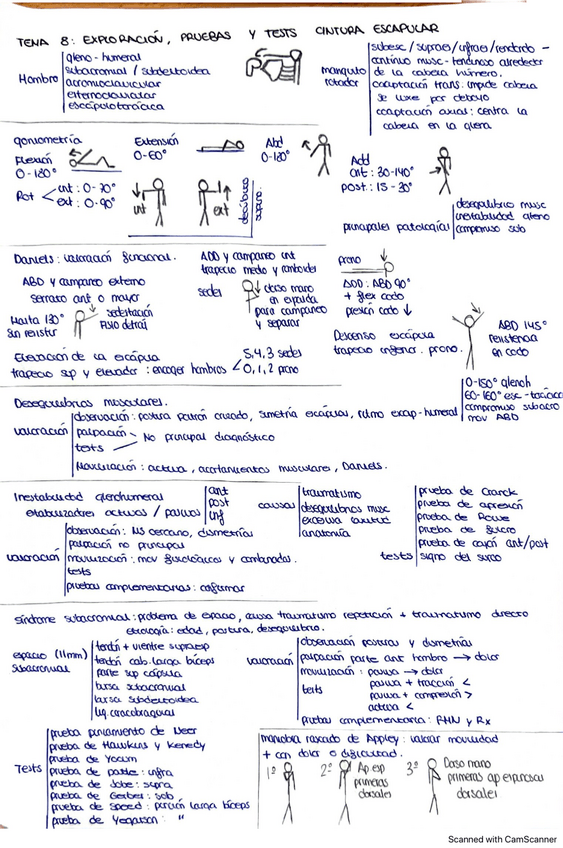 TEMA 8: EXPLORACIÓN, PRUEBAS Y TESTS CINTURA ESCAPULAR
Hombro
gleno-humeral
subacromial / subdeltoidea
acromioclavicular
esternoclavicular
escápulotorácica
manguito rotador
subesc/supraes/infraes/rendondo -
continuo musc-tendinoso alrededor
de la cabeza húmero.
coaptación trans: impide cabeza
se luxe por debajo
coaptación axial: centra la
cabeza en la glena
goniometría
Flexión
0-180°
Extensión
0-60°
Abd
0-180°
Add
ant: 30-140°
post: 15-30°
Rot
int: 0-70°
ext: 0-90°
int
ext
decúbito supino.
principales patología
desequilibrio musc
inestabilidad gleno
compromiso sub
Daniels: valoración funcional.
ABD y campaneo externo
serrato ant o mayor
Hasta 130°
sin resistir
sedestación
Fisio detrás
ADD y campaneo int
trapecio medio y romboides
sedes
dorso mano
en espalda
para campaneo
y separar
prono
ADD: ABD 90°
+ flex codo
presión codo ↓
Elevación de la escápula
trapecio sup y elevador: encoger hombros
5,4,3 sedes
0,1,2 prono
Descenso escápula
trapecio inferior. prono.
ABD 145°
resistencia
en codo
Desequilibrios musculares.
valoración
observación: postura patrón cruzado, simetría escápulas, ritmo escap-humeral
palpación
tests
No principal diagnóstico
Movilización: activa, acortamientos musculares, Daniels.
0-150° glenoh
60-160° esc-torácica
compromiso subacro
mov ABD
Inestabilidad glenohumeral
estabilizadores activos / pasivos
ant
post
inf
causas
traumatismo
desequilibrios musc
anatomía
valoración
observación: MS cercano, dismetrías
palpación no principal
movilización: mov fisiológicos y combinados.
tests
pruebas complementarias: confirmar
tests
prueba de Cranck
prueba de aprensión
prueba de Rowe
prueba de fulcro
prueba de cajón ant/post
signo del surco
síndrome subacromial: problema de espacio, causa traumatismo repetición + traumatismo directo
etiología: edad, postura, desequilibrio.
espacio (11mm)
subacromial
tendón + vientre supraesp
tendón cab. larga bíceps
parte sup cápsula
bursa subacromial
bursa subdeltoidea
lig. coracobraquial
valoración
observación postura y dismetrías
palpación parte ant hombro → dolor
movilización: pasiva → dolor
tests
pasiva + tracción <
pasiva + compresión >
activa <
Pruebas complementaria: RHN y Rx
Tests
prueba pinzamiento de Neer
prueba de Hawkins y Kenedy
prueba de Yocum
prueba de patte: infra
prueba de Jobe: supra
prueba de Gerber: sub
prueba de Speed: porción larga bíceps
prueba de Yegarson: "
maniobra rascado de Appley: valorar movilidad
+ con dolor o dificultad.
1º
2º
Ap esp
primeras
dorsales
3º
Dorso mano
primeras ap espinosas
dorsales
Scanned with CamScanner